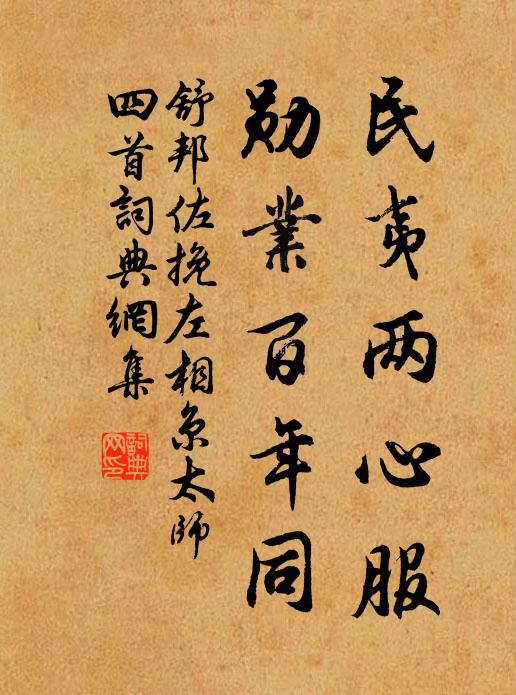 民夷两心服
勋業百年同
舒邦佐挽左相京太師
四首詞典網集
詞典
网印